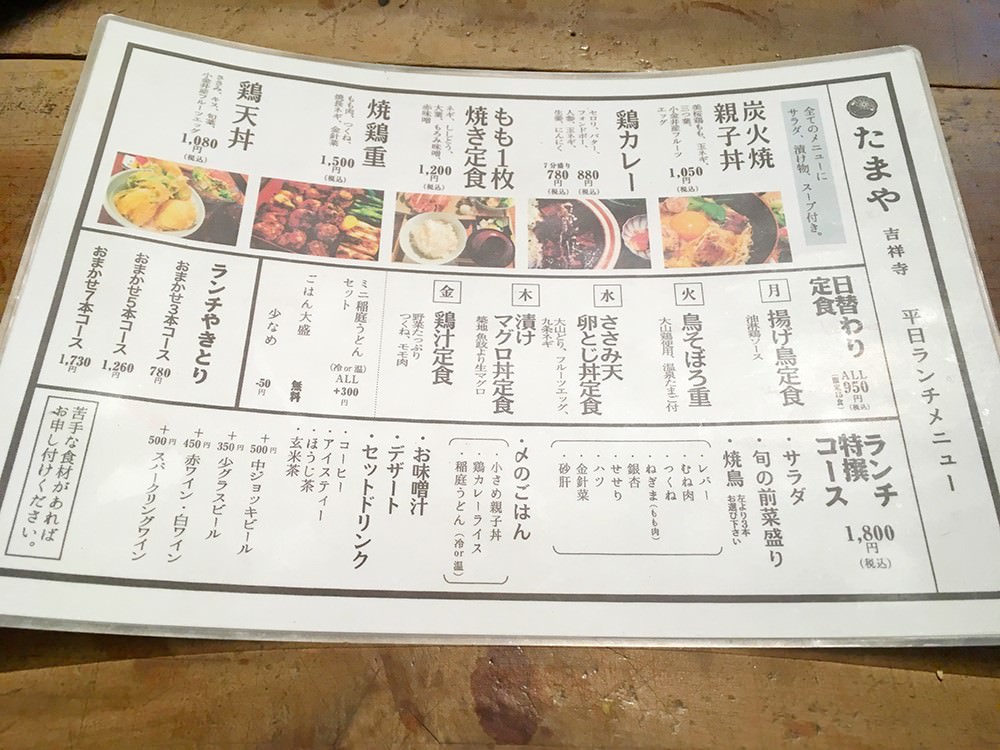 たまや
吉祥寺
平日ランチメニュー
全てのメニューに
サラダ、漬け物、スープ付き。
炭火焼
親子丼
美桜鶏もも、玉ネギ、
三つ葉、
小金井産フルーツ
エッグ
1,050
円
(税込)
鶏カレー
セロリ、バター、
フォンドボー、
人参、玉ネギ、
生姜、にんにく
880
円
(税込)
7分盛り
780
円
(税込)
もも1枚
焼き定食
ネギ、ししとう、
大葉、もろみ味噌、
赤味噌
1,200
円
(税込)
焼鶏重
もも肉、つくね、
焼長ネギ、金針菜
1,500
円
(税込)
鶏天丼
ささみ、キス、旬菜、
小金井産フルーツエッグ
1,080
円
(税込)
日替わり
定食
ALL
950
円
(税込)
(限定15食)
月
揚げ鳥定食
油淋鶏ソース
火
鳥そぼろ重
大山鶏使用、温泉たまご付
水
ささみ天
卵とじ丼定食
大山どり、フルーツエッグ、
九条ネギ
木
漬け
マグロ丼定食
築地 魚政より生マグロ
金
鶏汁定食
野菜たっぷり
つくね、モモ肉
ミニ稲庭うどん
セット
(冷or温)
ALL
+300
円
ごはん 大盛
無料
少なめ
-50
円
ランチやきとり
おまかせ3本コース
780
円
おまかせ5本コース
1,260
円
おまかせ7本コース
1,730
円
ランチ
特撰
コース
1,800
円
(税込)
・サラダ
・旬の前菜盛り
・焼鳥
左より3本
お選び下さい
・レバー
・むね肉
・つくね
・ねぎま(もも肉)
・銀杏
・せせり
・ハツ
・金針菜
・砂肝
・〆のごはん
・小さめ親子丼
・鶏カレーライス
・稲庭うどん(冷or温)
・お味噌汁
・デザート
・セットドリンク
・コーヒー
・アイスティー
・ほうじ茶
・玄米茶
+500円 中ジョッキビール
+350円 少グラスビール
+450円 赤ワイン・白ワイン
+500円 スパークリングワイン
苦手な食材があれば
お申し付けください。